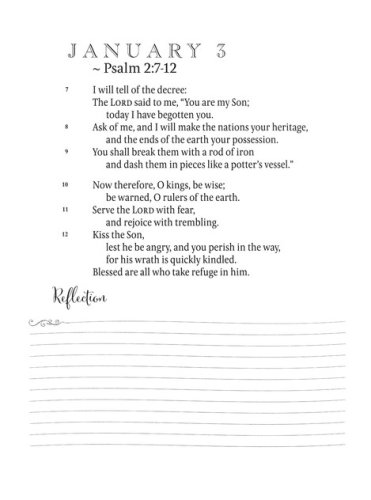 JANUARY 3
~ Psalm 2:7-12
7 I will tell of the decree:
The LORD said to me, “You are my Son;
today I have begotten you.
8 Ask of me, and I will make the nations your heritage,
and the ends of the earth your possession.
9 You shall break them with a rod of iron
and dash them in pieces like a potter’s vessel.”
10 Now therefore, O kings, be wise;
be warned, O rulers of the earth.
11 Serve the LORD with fear,
and rejoice with trembling.
12 Kiss the Son,
lest he be angry, and you perish in the way,
for his wrath is quickly kindled.
Blessed are all who take refuge in him.
Reflection